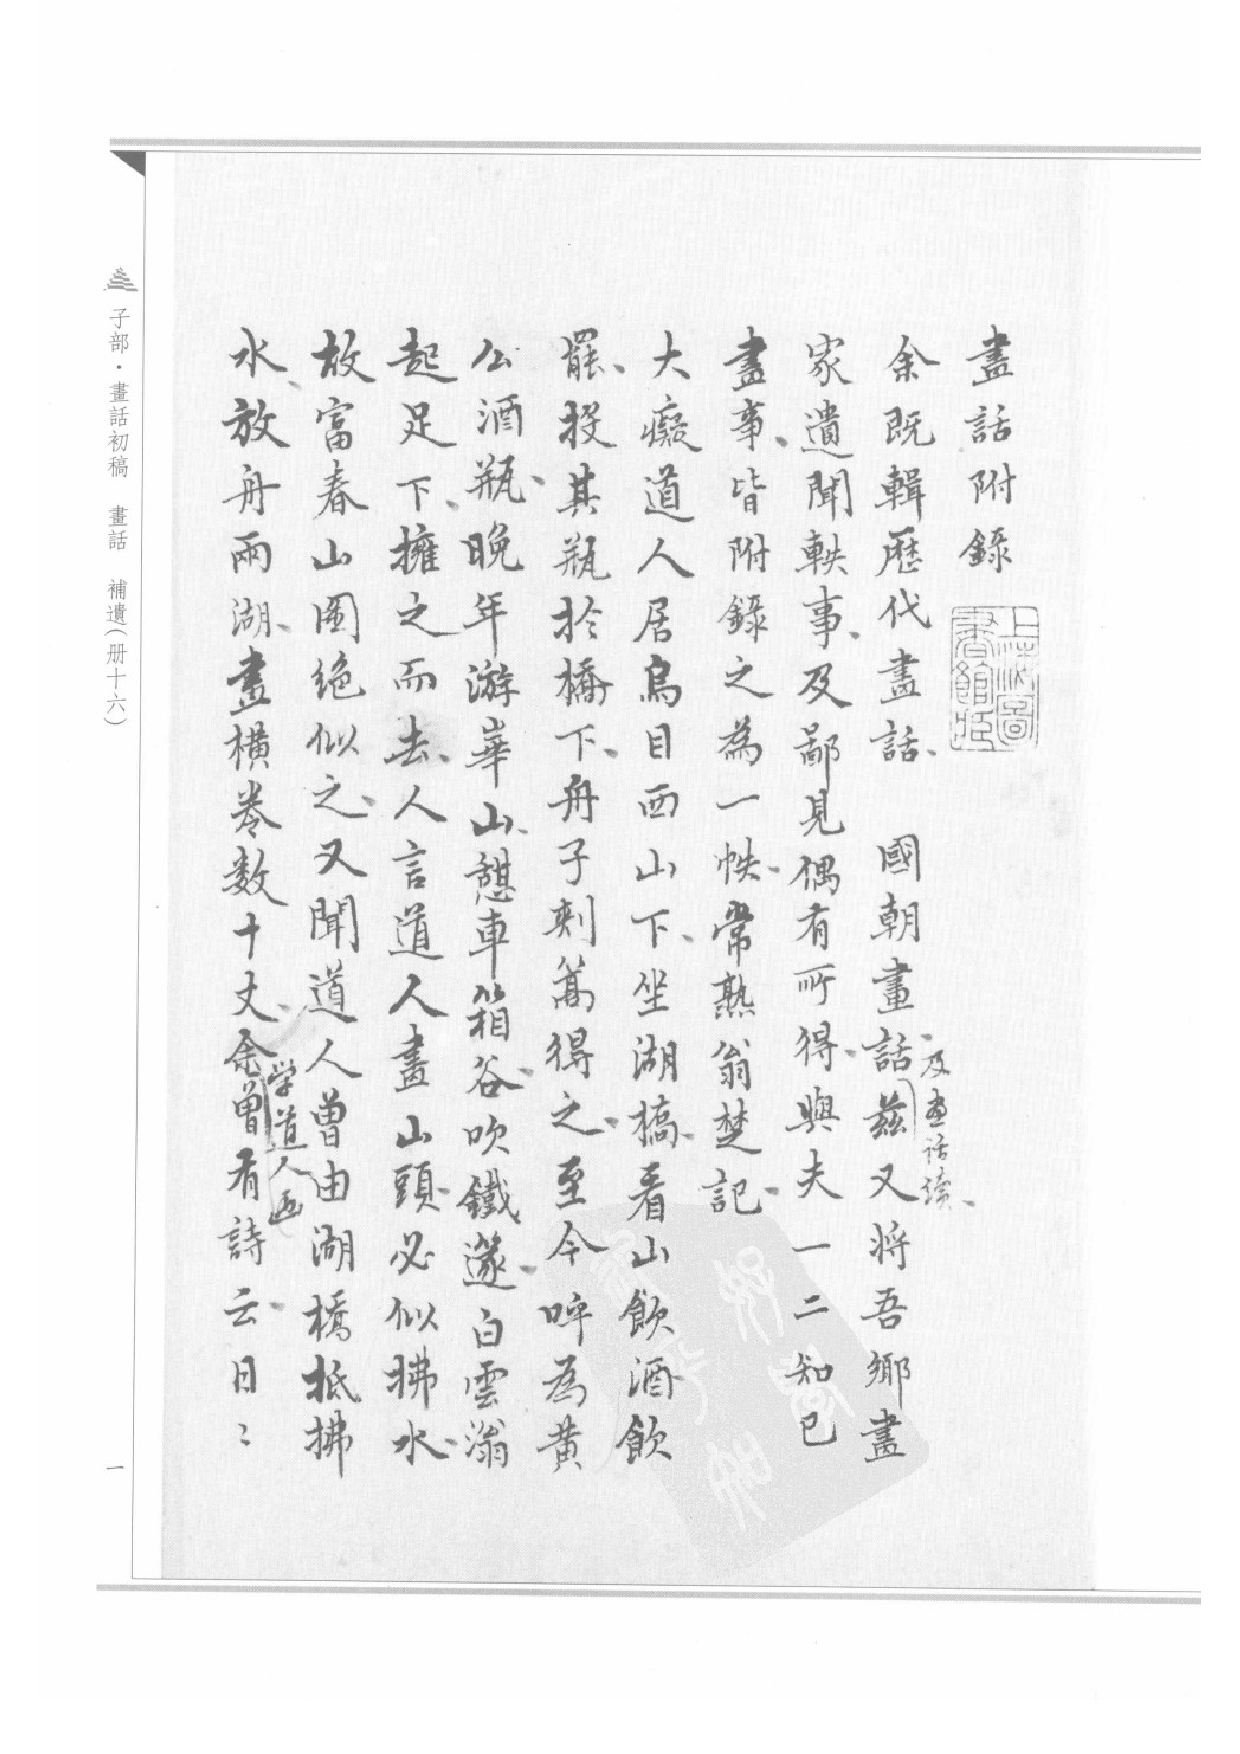 畫話附錄
余既輯歷代畫話、國朝畫話、及畫话續、兹又將吾鄉畫
家遺聞軼事、及鄙見偶有所得、與夫一二知已
畫事、皆附錄之為一帙、常熟翁楚記、
大癡道人居烏目西山下、坐湖橋、看山飲酒飲
罷、投其瓶於橋下、舟子刺篙得之、至今呼為黄
公酒瓶、晚年游華山、憩車箱谷、吹鐵邃、白雲滃
起足下、擁之而去、人言道人畫山頭、必似拂水、
故富春山圖絕似之、又聞道人曾由湖橋抵拂
水、放舟兩湖、畫横卷数十丈、余曾学道人画有詩云、日〻
上海圖書館藏
子部·畫話初稿 畫話 補遺(册十六)
一